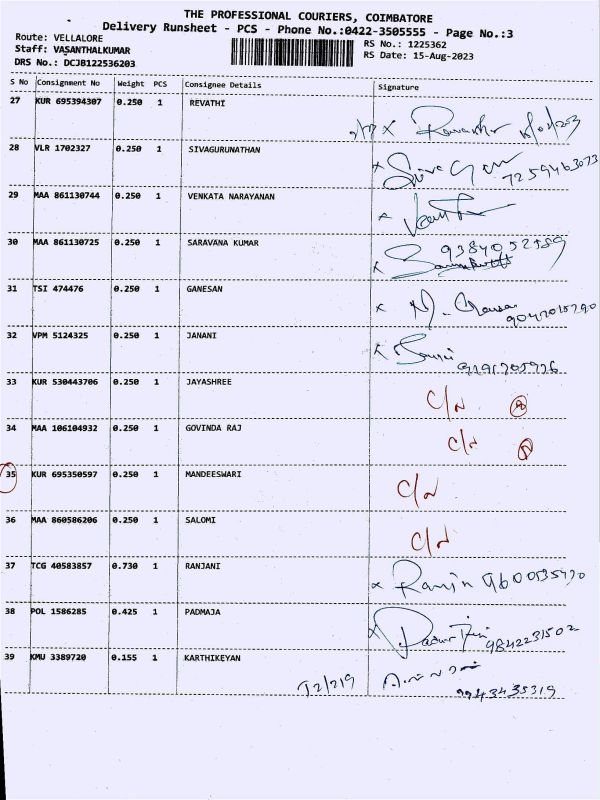 THE PROFESSIONAL COURIERS, COIMBATORE
Delivery Runsheet - PCS - Phone No.:0422-3505555 - Page No.:3
Route: VELLALORE
RS No.: 1225362
Staff: VASANTHALKUMAR
RS Date: 15-Aug-2023
DRS No.: DCJB122536203
S No Consignment No Weight PCS Consignee Details Signature
27 KUR 695394307 0.250 1 REVATHI
28 VLR 1702327 0.250 1 SIVAGURUNATHAN
7259463073
29 MAA 861130744 0.250 1 VENKATA NARAYANAN
30 MAA 861130725 0.250 1 SARAVANA KUMAR
31 TSI 474476 0.250 1 GANESAN
32 VPM 5124325 0.250 1 JANANI
33 KUR 530443706 0.250 1 JAYASHREE C/N
34 MAA 106104932 0.250 1 GOVINDA RAJ C/N
35 KUR 695350597 0.250 1 MANDEESWARI C/N
36 MAA 860586206 0.250 1 SALOMI C/N
37 TCG 40583857 0.730 1 RANJANI
38 POL 1586285 0.425 1 PADMAJA
9842231502
39 KMU 3389720 0.155 1 KARTHIKEYAN
12/219
9943435319